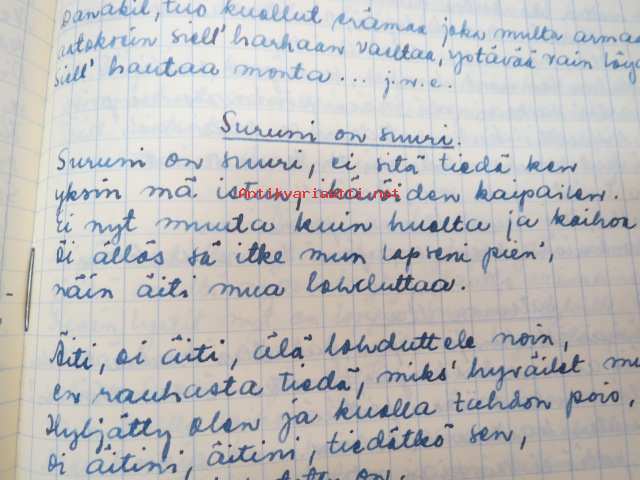 Danakil, tuo kuollut erämaa joka multa armaa
autokorin siell' harhaan vaeltaa, yötävää vain löy
siell' hautaa monta ... j.n.e.
Suruni on suuri.
Suruni on suuri, ei sitä tiedä ken
yksin mä istun, ikävöiden kaipailen.
Antikvariaatti.net
Ei nyt muuta kuin huolta ja kaihoa
Oi ällös sä itke mun lapseni pien',
näin äiti mua lohduttaa.
Äiti, oi äiti, älä lohduttele noin,
en rauhasta tiedä, miks' hyräilet mu
Hyljätty olen ja kuolla tahdon pois,
oi äitini, äitini, tiedätkö sen,
on,